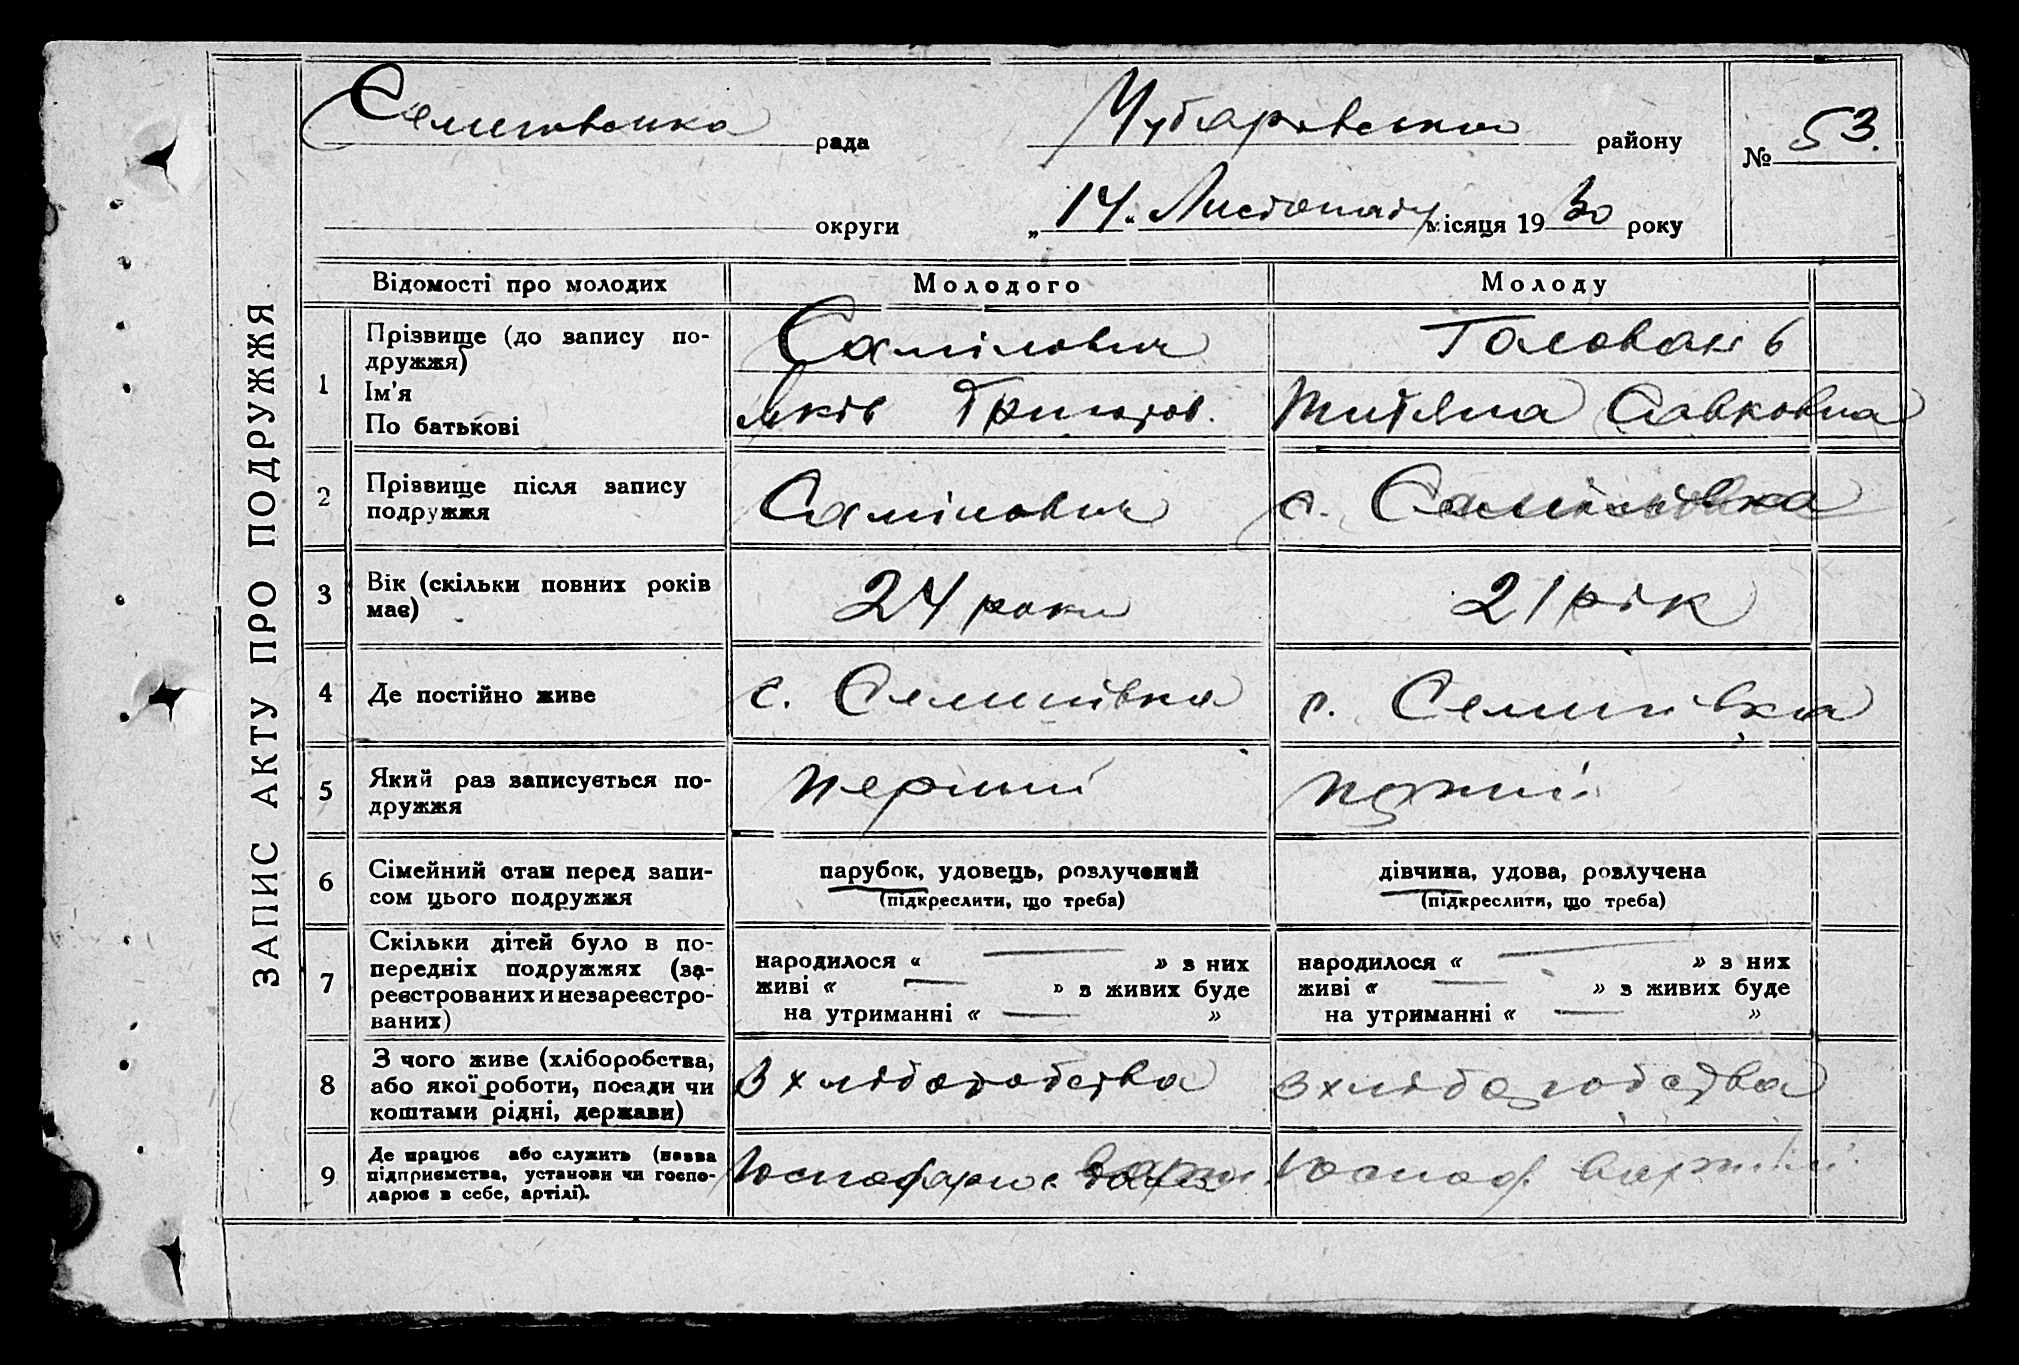 Семенівська рада Чубарівського району № 53.
округи „14“ Листопаду місяця 1930 року
ЗАПИС АКТУ ПРО ПОДРУЖЖЯ
Відомості про молодих Молодого Молоду
1 Прізвище (до запису по-
дружжя) Самілович Головань
Ім'я
По батькові Яків Григоров. Титяна Савковна
2 Прізвище після запису
подружжя Самілович с.
3 Вік (скільки повних років
має) 24 роки 21 рік
4 Де постійно живе с. Семенівка с. Семенівка
5 Який раз записується по-
дружжя перший
6 Сімейний стан перед запи-
сом цього подружжя
парубок, удовець, розлучений
(підкреслити, що треба)
дівчина, удова, розлучена
(підкреслити, що треба)
7 Скільки дітей було в по-
передніх подружжях (за-
реєстрованих и незареєстро-
ваних)
народилося « — » з них
живі « — » з живих буде
на утриманні « — »
народилося « — » з них
живі « — » з живих буде
на утриманні « — »
8 З чого живе (хліборобства,
або якої роботи, посади чи
коштами рідні, держави)
З хліборобства З хліборобства
9 Де працює або служить (назва
підприємства, установи чи госпо-
дарює в себе, артілі).